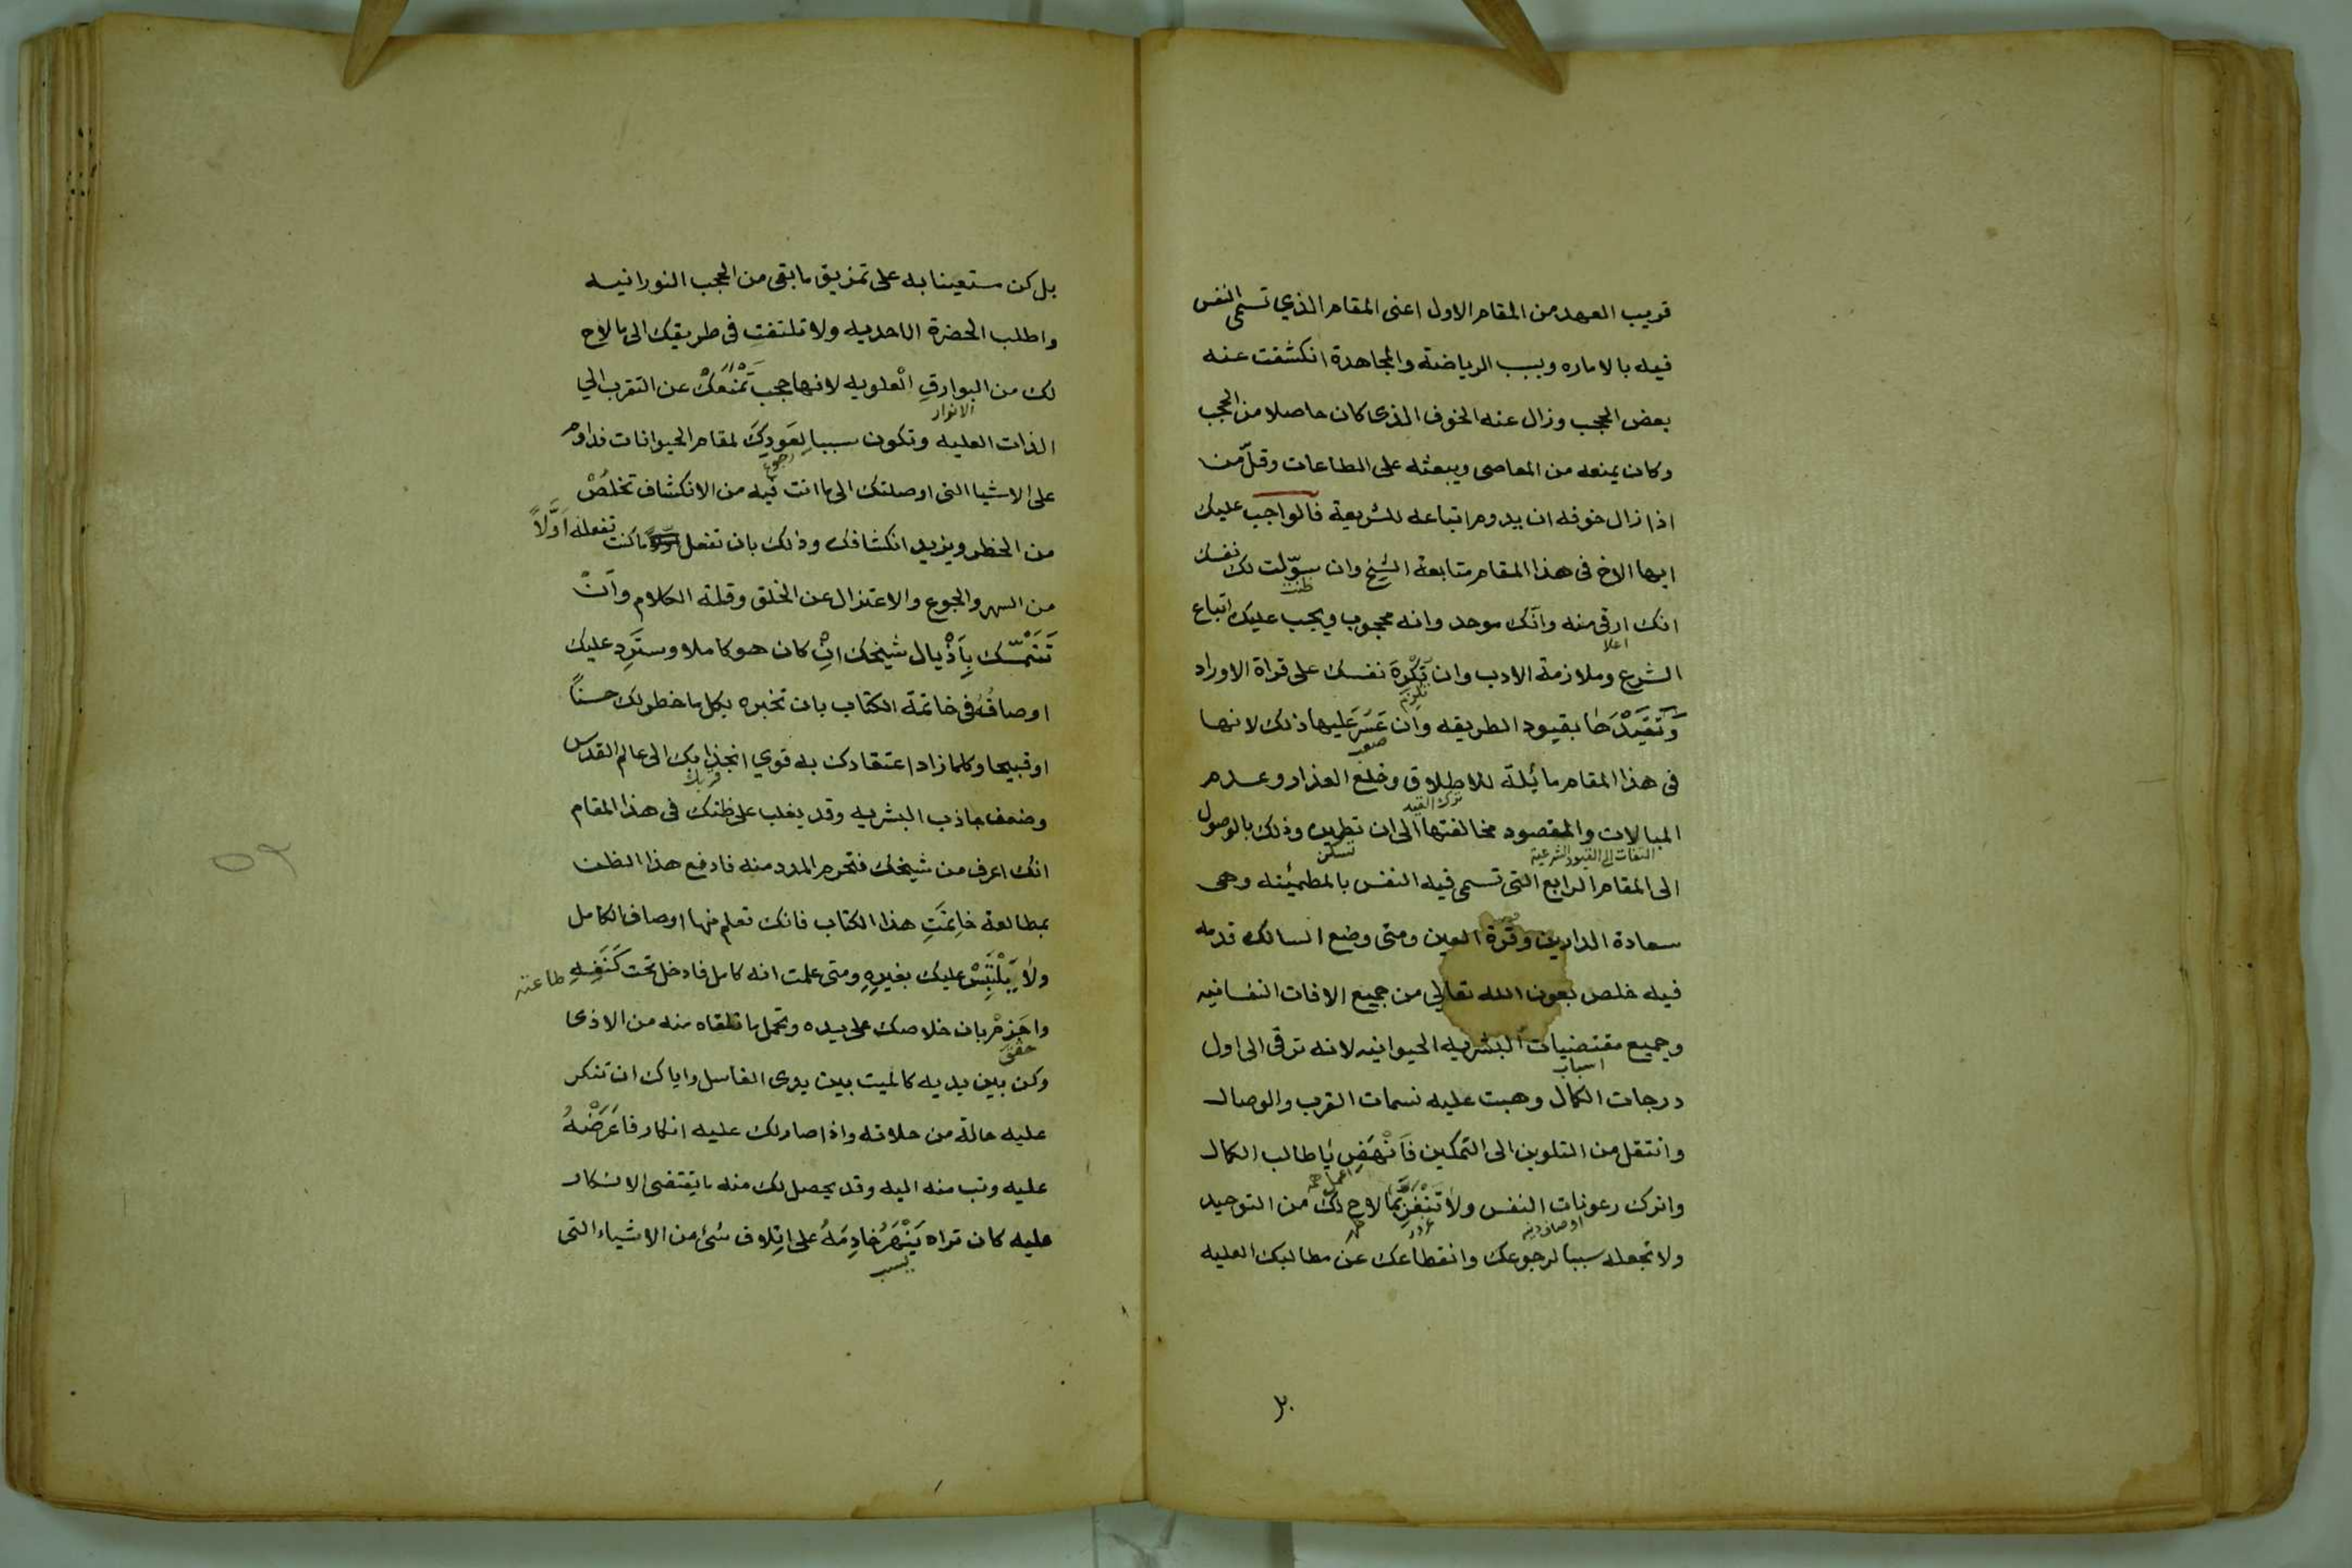 قريب العهد من المقام الاول اعنى المقام الذي تسمى النفس
فيه بالاماره وبسبب الرياضة والمجاهدة انكشفت عنه
بعض الحجب وزال عنه الخوف الذى كان حاصلا من الحجب
وكان يمنعه من المعاصى ويبعثه على الطاعات وقلّ من
اذا زال خوفه ان يدوم اتباعه للشريعة فالواجب عليك
ايها الاخ فى هذا المقام متابعة الشيخ وان سوّلت لك نفسك
ظنت
انك ارقى منه وانّك موحد وانه محجوب ويجب عليك اتباع
اعلا
الشرع وملازمة الادب وان تُكْرِهَ نفسك على قراة الاوراد
تلزم
وَتُقَيِّدَهَا بقيود الطريقه وان عَسُرَ عليها ذلك لانها
صعب
فى هذا المقام مائلة للاطلاق وخلع العذار وعدم
ترك القيد
المبالات والمقصود مخالفتها الى ان تطمين وذلك بالوصول
التفات الى القيود الشرعية
تسكن
الى المقام الرابع التى تسمى فيه النفس بالمطمئنه وهى
سعادة الدارين وقرّة العين ومتى وضع السالك قدمه
فيه خلص بعون الله تعالى من جميع الافات النفسانيه
وجميع مقتضيات البشريه الحيوانيه لانه ترقى الى اول
اسباب
درجات الكمال وهبت عليه نسمات القرب والوصال
وانتقل من التلوين الى التمكين فَانْهَضِ يا طالب الكمال
واترك رعونات النفس ولا تَغْتَرَّ بما لاح لك من التوحيد
ظهر
ولا تجعله سببا لرجوعك وانقطاعك عن مطالبك العليه
بل
بل كن مستعينا به على تمزيق ما بقى من الحجب النورانيه
واطلب الحضرة الاحديه ولا تلتفت فى طريقك الى ما لاح
لك من البوارقِ الْعلويه لانها حجب تَمْنَعُكْ عن التقرب الى
الانوار
الذات العليه وتكون سببا لِعَودِكَ لمقام الحيوانات فداوم
رجوع
على الاشيا التى اوصلتك الى ما انت فيه من الانكشاف تخلُصْ
من الخطر ويزيد انكشافك وذلك بان تفعل ما كنت تفعله اَوَّلاً
من السهر والجوع والاعتزال عن الخلق وقلة الكلام وَانْ
تَتَمَسّك بِاَذْيال شيخك اِنْ كان هو كاملا وستَرِد عليك
اوصافُهُ فى خاتمة الكتاب بان تخبره بكل ما خطر لك حسناً
او قبيحا وكلما زاد اعتقادك به قوي انجذابك الى عالم القدس
قربك
وضعف جاذب البشريه وقد يغلب على ظنك فى هذا المقام
انك اعرف من شيخك فتحرم المدد منه فادفع هذا الظن
بمطالعة خاتمَتِ هذا الكتاب فانك تعلم منها اوصاف الكامل
ولا يَلْتَبِسْ عليك بغيرهِ ومتى علمت انه كامل فادخل تحت كَنَفِهِ
طاعته
واجزمْ بان خلاصك على يده وتحمل ما تلقاه منه من الاذى
حقق
وكن بين يديه كالميت بين يدى الغاسل واياك ان تنكر
عليه حالة من حلاته واذا صار لك عليه انكار فاَعَرَضْهُ
عليه وتب منه اليه وقد يحصل لك منه ما يقتضى الانكار
عليه كان تراه يَنْهَرُ خادِمَهُ على اتلاف شئ من الاشياء التى
يسب